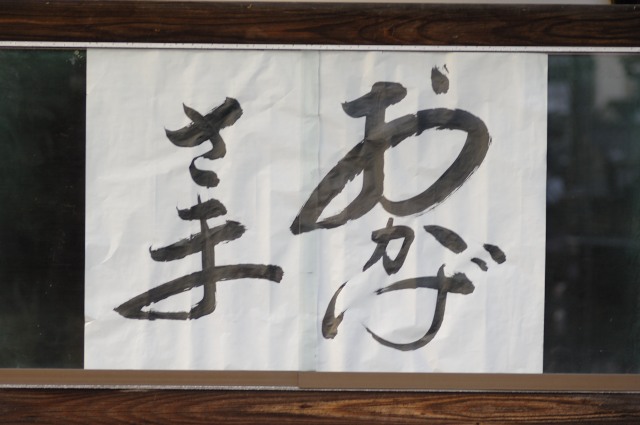 おかげ
さま